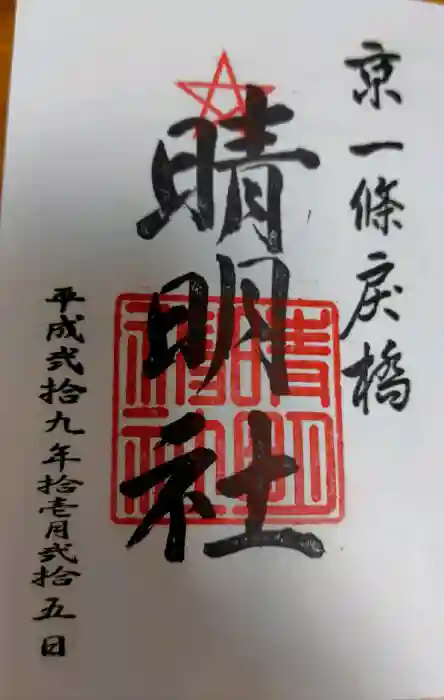 京一條戻橋
晴明社
晴明神社
平成弐拾九年拾壱月弐拾五日